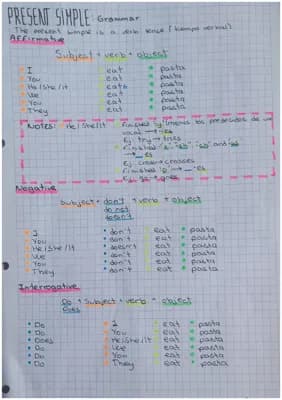 PRESENT SIMPLE Grammar
The present simple is a verb tense (tiempo verbal)
Affirmative
Subject + verb + object
I eat pasta
You eat pasta
He/She/it eats pasta
We eat pasta
You eat pasta
They eat pasta
Notes: He/She/it
vocal → ies
Ej. try → tries
→ es
Ej. cross → crosses
Finished "o" → es
Ej. go → goes
Negative
Subject + don't + verb + object
do not
doesn't
I don't eat pasta
You don't eat pasta
He/She/it doesn't eat pasta
We don't eat pasta
You don't eat pasta
They don't eat pasta
Interrogative
Do + Subject + verb + object
Does
Do I eat pasta
Do You eat pasta
Does He/She/it eat pasta
Do We eat pasta
Do You eat pasta
Do They eat pasta